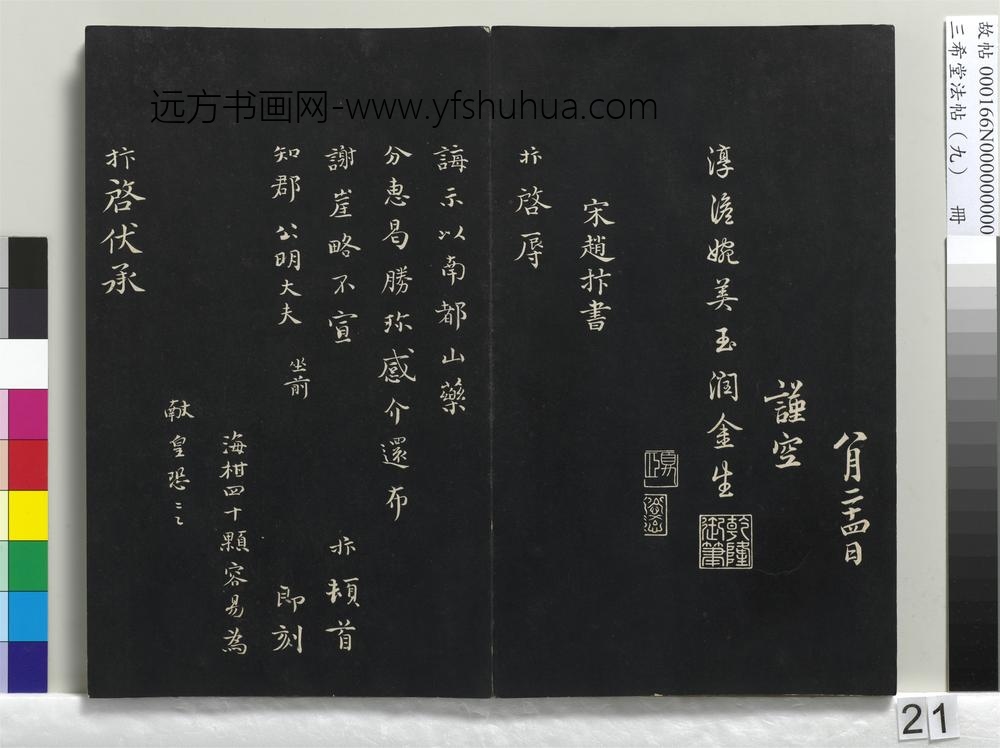 故帖 000166N000000000
三希堂法帖（九） 冊
远方书画网-www.yfshuhua.com
八月二十四日
謹空
淳澹婉美玉润金生
乾隆御筆
宋趙抃書
抃啓辱
誨示以南都山藥
分惠曷勝珎感介還布
謝崖略不宣 抃頓首
知郡公明大夫 坐前 即刻
海柑四十顆容易為
献皇恐〻
抃啓伏承
21